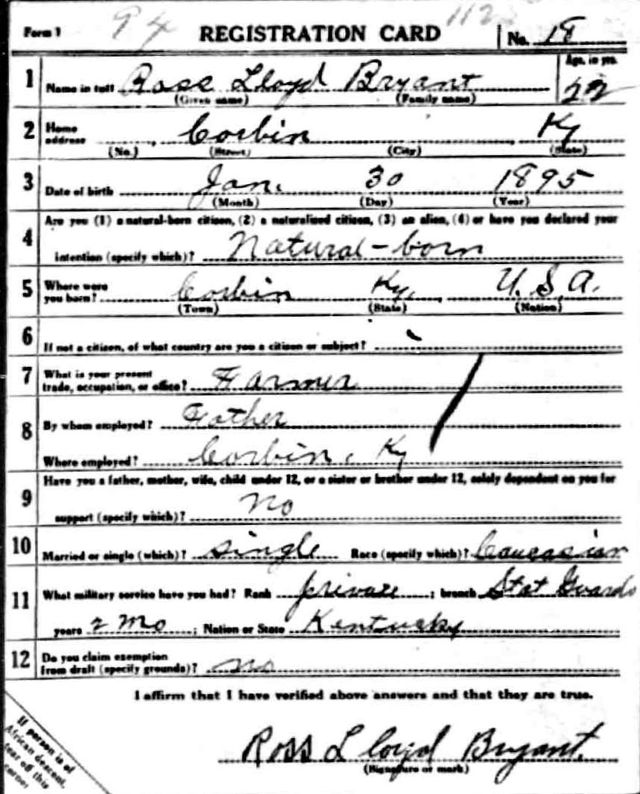 Form 1 94 REGISTRATION CARD 112 No. 18
1 Name in full Ross Lloyd Bryant Age, in yrs. 22
(Given name) (Family name)
2 Home address Corbin Ky
(No.) (Street) (City) (State)
3 Date of birth Jan. 30 1895
(Month) (Day) (Year)
Are you (1) a natural-born citizen, (2) a naturalized citizen, (3) an alien, (4) or have you declared your
4 intention (specify which)? Natural-born
5 Where were you born? Corbin Ky. U.S.A.
(Town) (State) (Nation)
6 If not a citizen, of what country are you a citizen or subject?
7 What is your present trade, occupation, or office? Farmer
8 By whom employed? Father
Where employed? Corbin, Ky
Have you a father, mother, wife, child under 12, or a sister or brother under 12, solely dependent on you for
9 support (specify which)? No
10 Married or single (which)? single Race (specify which)? Caucasian
11 What military service have you had? Rank private ; branch Stat Guards
years 2 mo ; Nation or State Kentucky
12 Do you claim exemption from draft (specify grounds)? no
I affirm that I have verified above answers and that they are true.
Ross Lloyd Bryant
(Signature or mark)
If person is of
African descent,
tear off this
corner